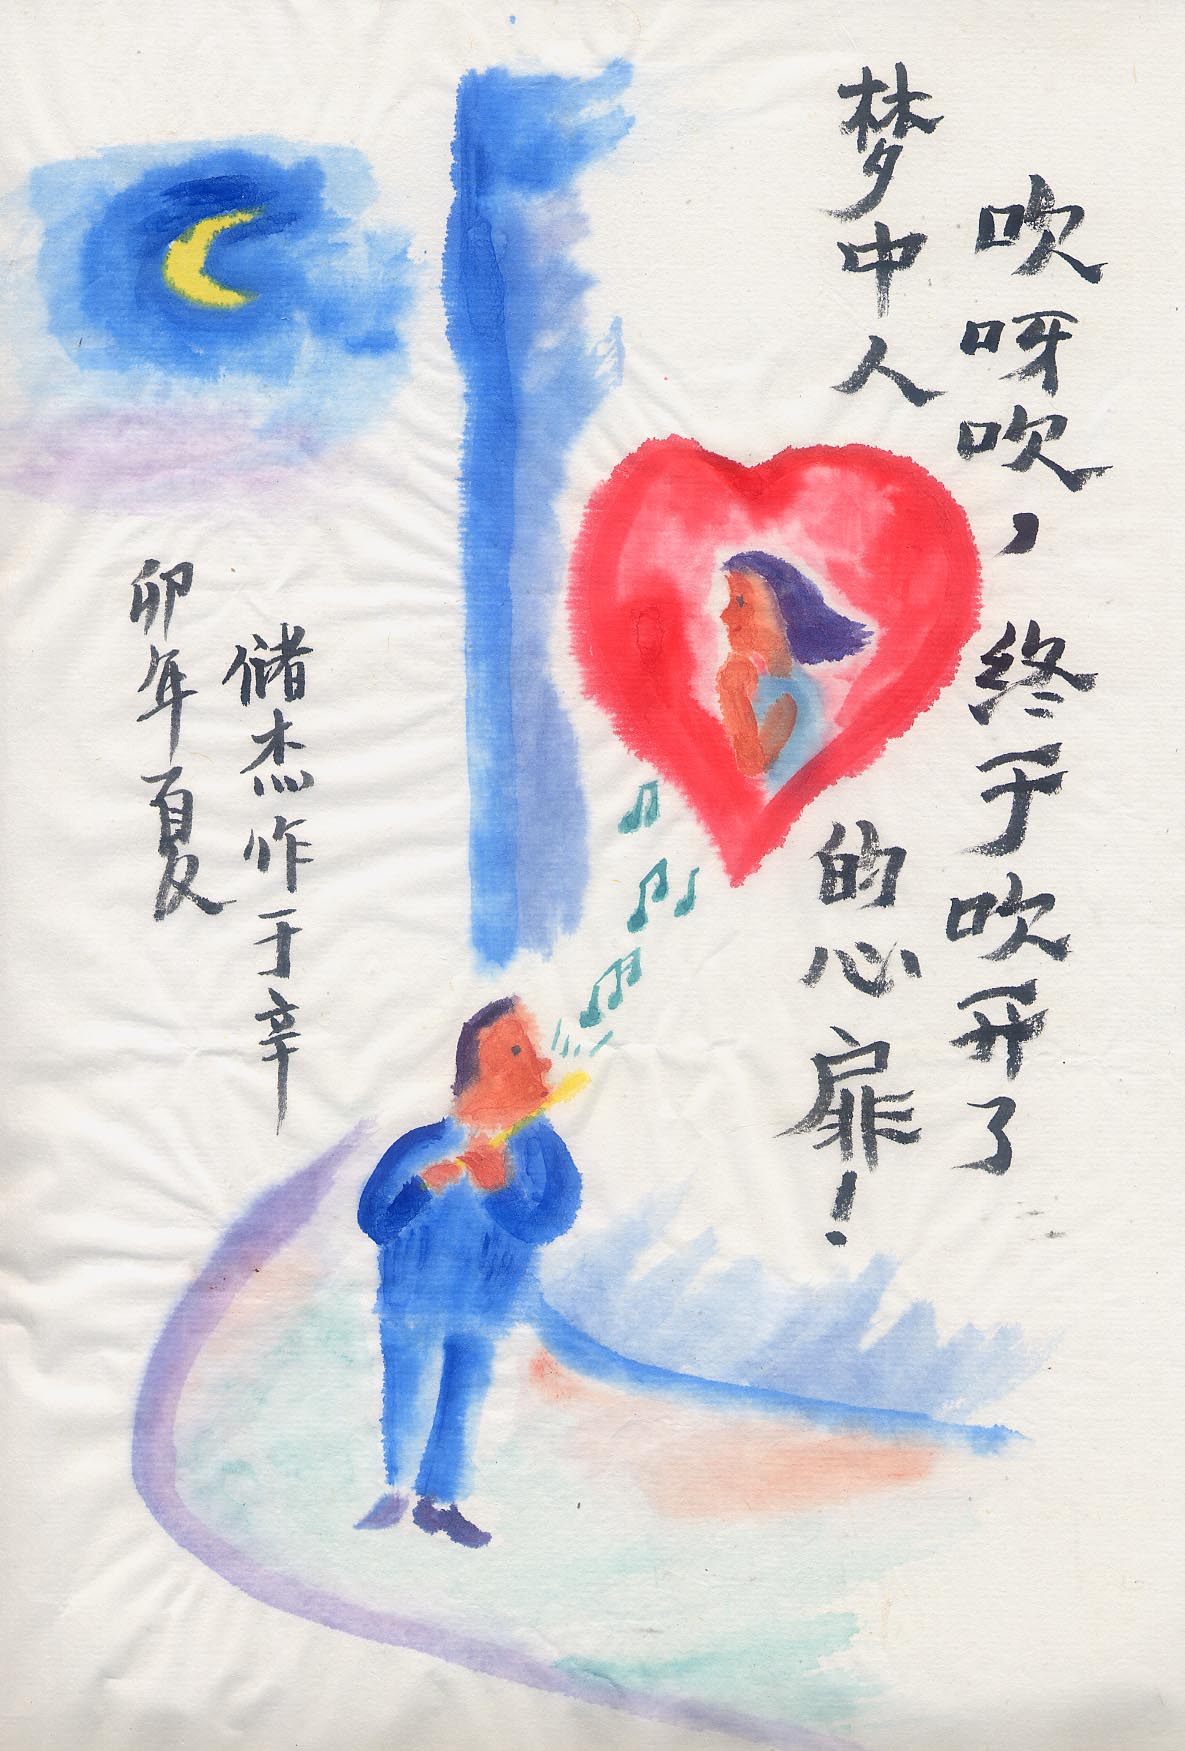 吹呀吹，终于吹开了
梦中人
的心扉！
储杰作于辛
卯年夏